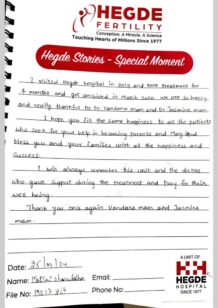 HEGDE
FERTILITY
Conception. A Miracle. A Science
Touching Hearts of Millions Since 1977
Hegde Stories - Special Moment
I visited Hegde hospital in 2019 and took treatment for
4 months and got conceived in March 2020. We are so happy
and really thankful to Dr. Vandana mam and Dr. Jasmine mam.
I hope you fill the same happiness to all the patients
who seek for your help in becoming parents and May God
bless you and your families with all the happiness and
success.
I will always remember this visit and the doctors
who gave support during the treatment and Pray for their
well being.
Thank you once again Vandana mam and Jasmine
mam.
Date: 25/01/24
Name:
File No:
Email:
Phone No:
A UNIT OF
HEGDE
HOSPITAL
SINCE 1977